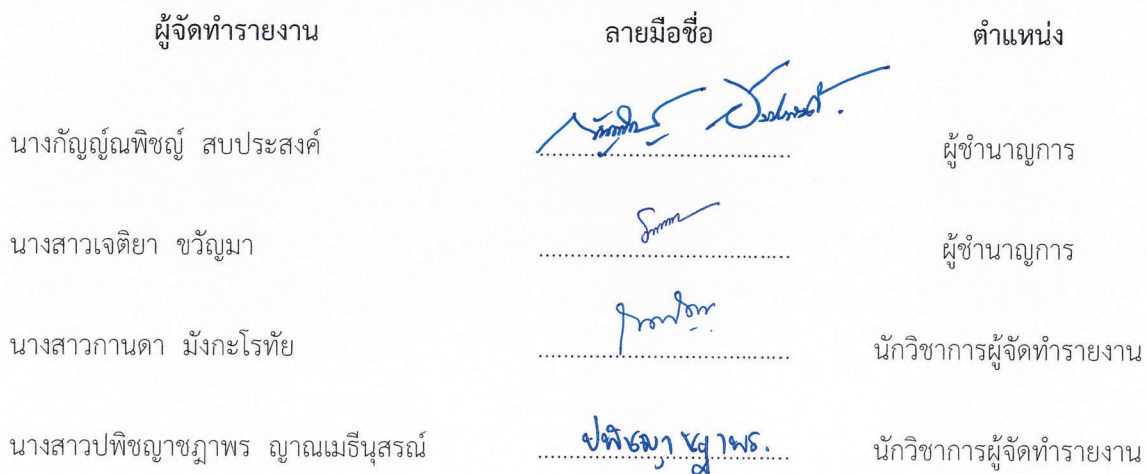 ผู้จัดทำรายงาน ลายมือชื่อ ตำแหน่ง
นางกัญญ์ณพิชญ์ สบประสงค์ ผู้ชำนาญการ
นางสาวเจติยา ขวัญมา ผู้ชำนาญการ
นางสาวกานดา มังกะโรทัย นักวิชาการผู้จัดทำรายงาน
นางสาวปพิชญาชฎาพร ญาณเมธีนุสรณ์ ปพิชญาชฎาพร. นักวิชาการผู้จัดทำรายงาน